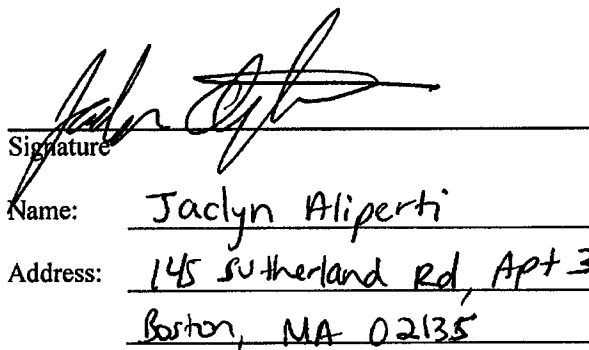 Signature
Name: Jaclyn Aliperti
Address: 145 Sutherland Rd, Apt 3
Boston, MA 02135